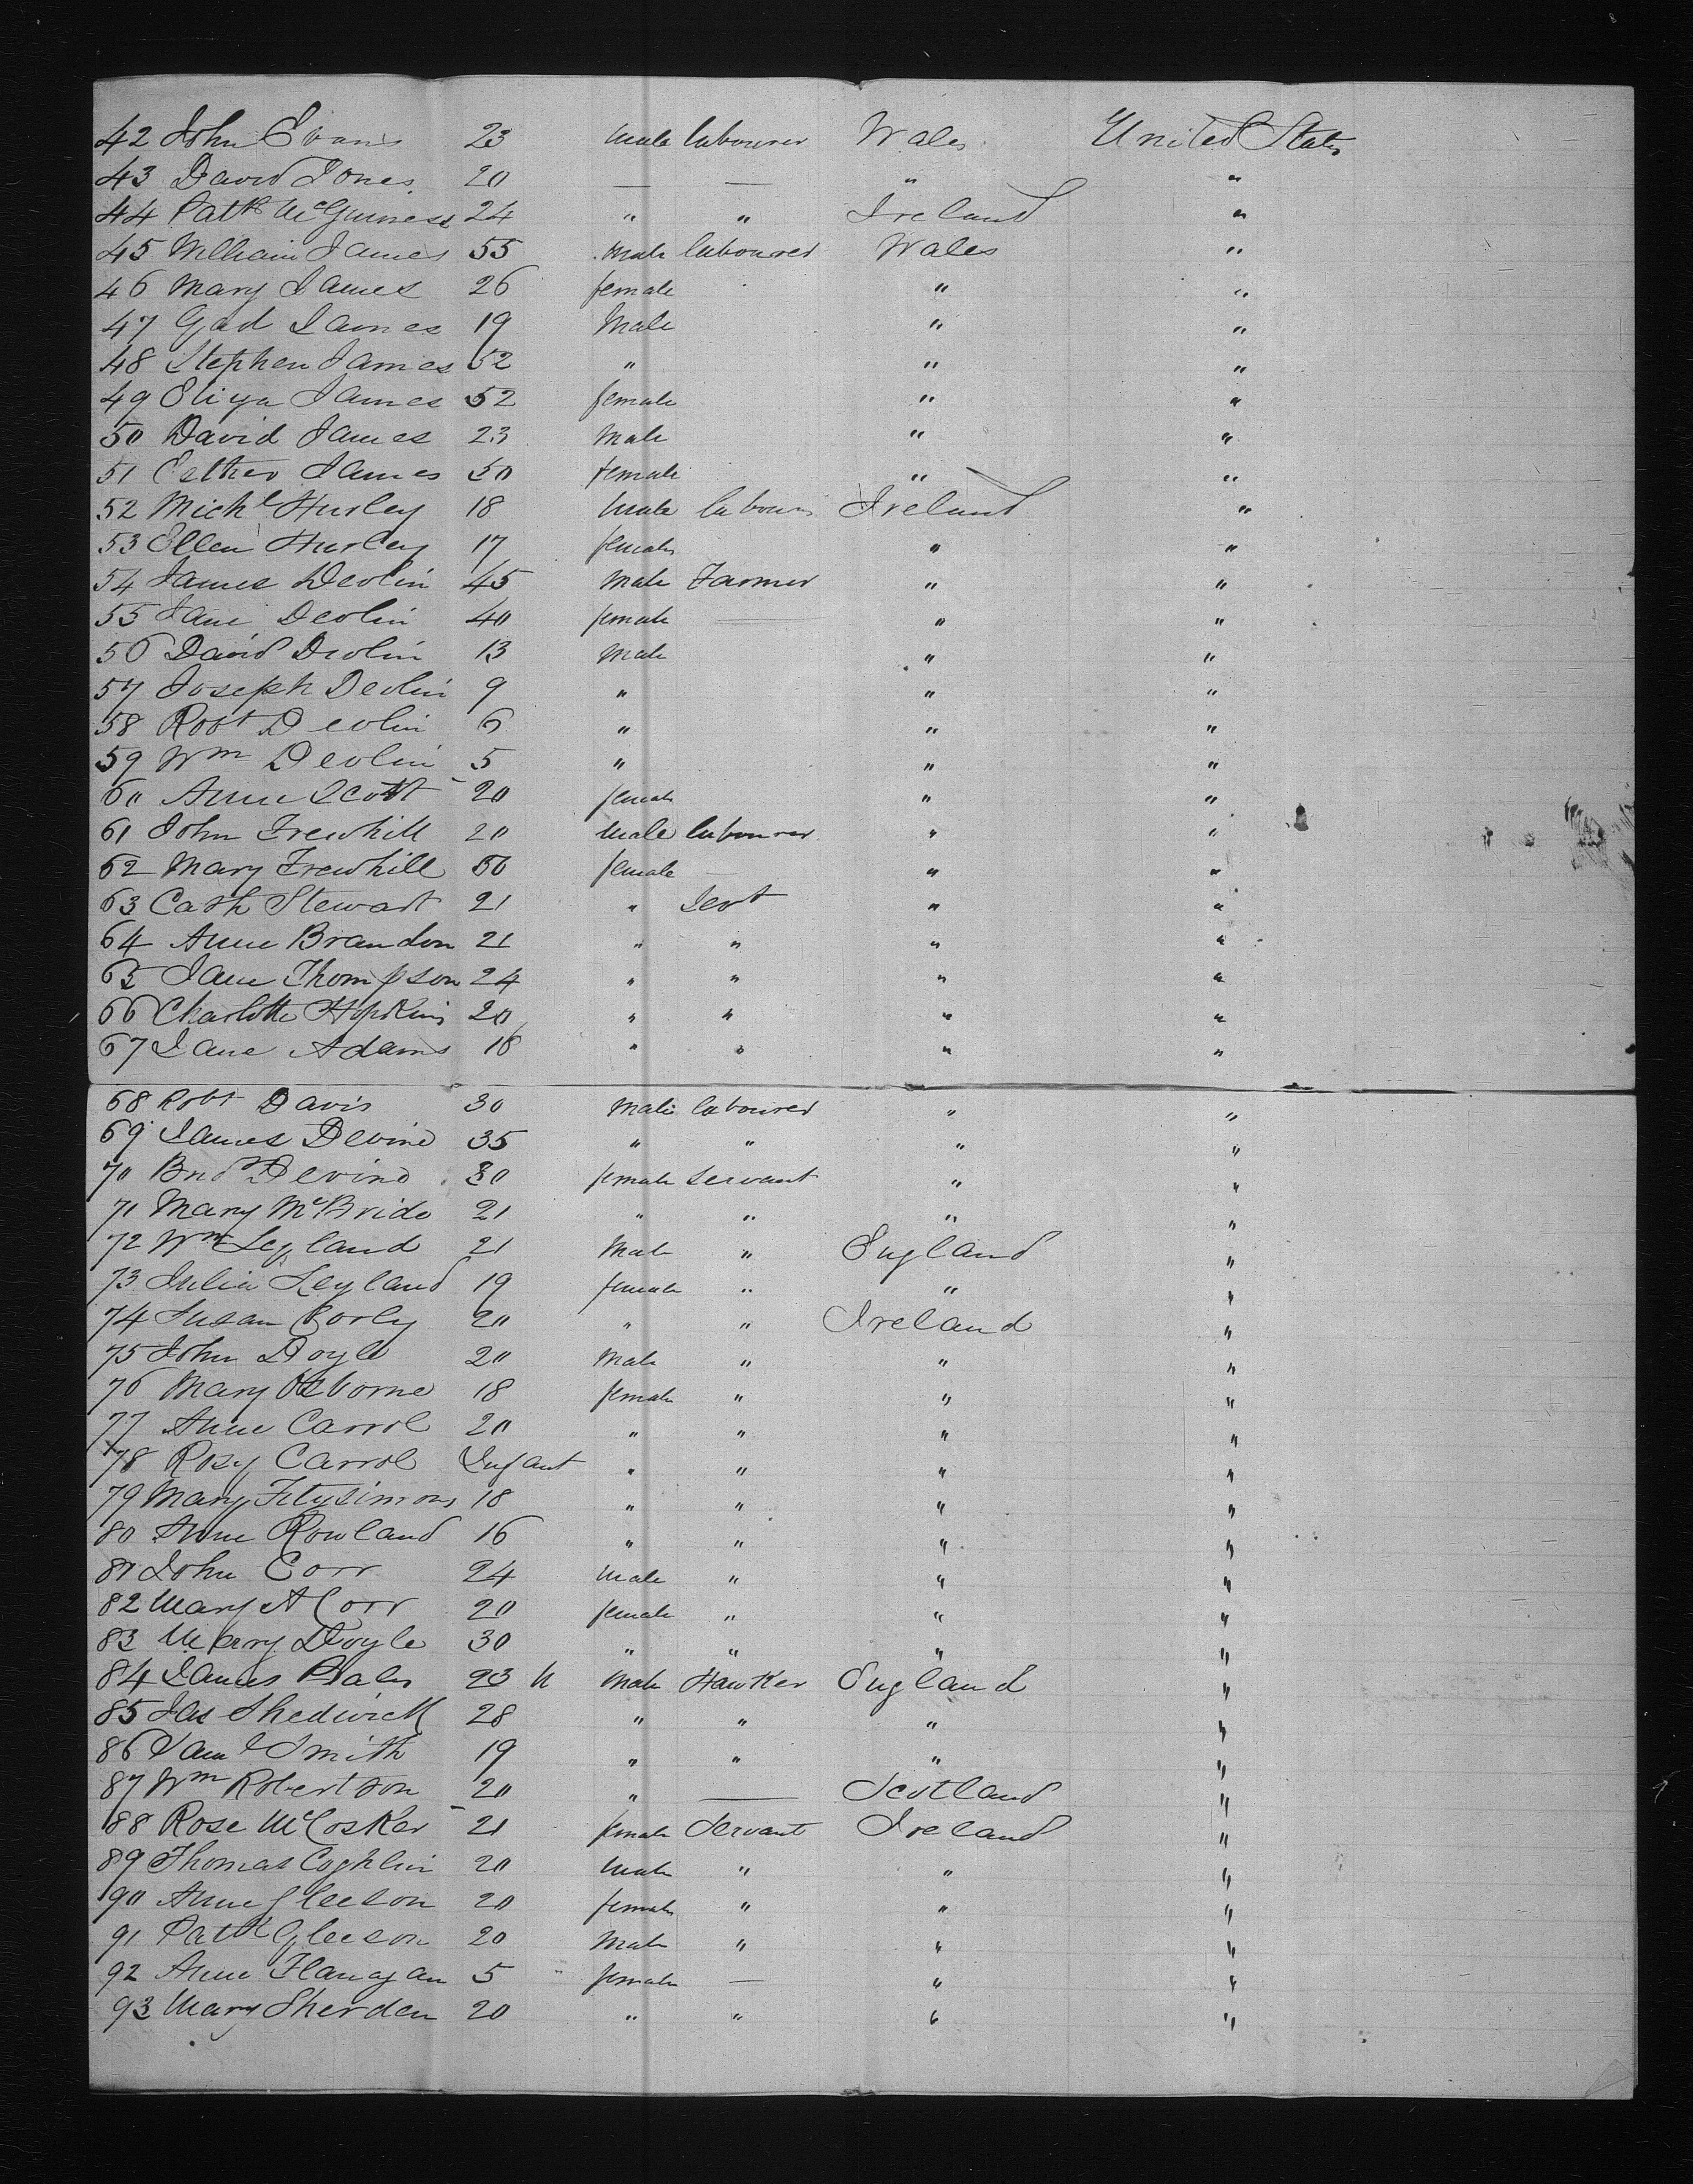 42 John Evans 23 male labourer Wales United States
43 David Jones 20 — — " "
44 Patk McGuiness 24 " " Ireland "
45 William James 55 male labourer Wales "
46 Mary James 26 female " "
47 Gad James 19 Male " "
48 Stephen James 52 " " "
49 Eliza James 52 female " "
50 David James 23 Male " "
51 Esther James 50 female " "
52 Michl Hurley 18 male labour Ireland "
53 Ellen Hurley 17 female " "
54 James Devlin 45 Male Farmer " "
55 Jane Devlin 40 female — " "
56 David Devlin 13 Male " "
57 Joseph Devlin 9 " " "
58 Robt Devlin 6 " " "
59 Wm Devlin 5 " " "
60 Anne Scott 20 female " "
61 John Trewhill 20 male labourer " "
62 Mary Trewhill 50 female — " "
63 Cath Stewart 21 " Sert " "
64 Anne Brandon 21 " " " "
65 Jane Thompson 24 " " " "
66 Charlotte Hopkins 20 " " " "
67 Jane Adams 16 " " " "
68 Robt Davis 30 Male labourer " "
69 James Devine 35 " " " "
70 Brid Devine 30 female Servant " "
71 Mary McBride 21 " " " "
72 Wm Leyland 21 Male " England "
73 Julia Leyland 19 female " " "
74 Susan Corly 20 " " Ireland "
75 John Doyle 20 Male " " "
76 Mary Osborne 18 female " " "
77 Anne Carrol 20 " " " "
78 Rosy Carrol Infant " " " "
79 Mary Fitzsimons 18 " " " "
80 Anne Rowland 16 " " " "
81 John Corr 24 male " " "
82 Mary A Corr 20 female " " "
83 Mary Doyle 30 " " " "
84 James 23 Male Hawker England "
85 Jas Shedwick 28 " " " "
86 Saml Smith 19 " " " "
87 Wm Robertson 20 " — Scotland "
88 Rose McCosker 21 female Servant Ireland "
89 Thomas Coghlin 20 male " " "
90 Anne Gleeson 20 female " " "
91 Patk Gleeson 20 Male " " "
92 Anne Flanagan 5 " female — " "
93 Mary Sherden 20 " " " "